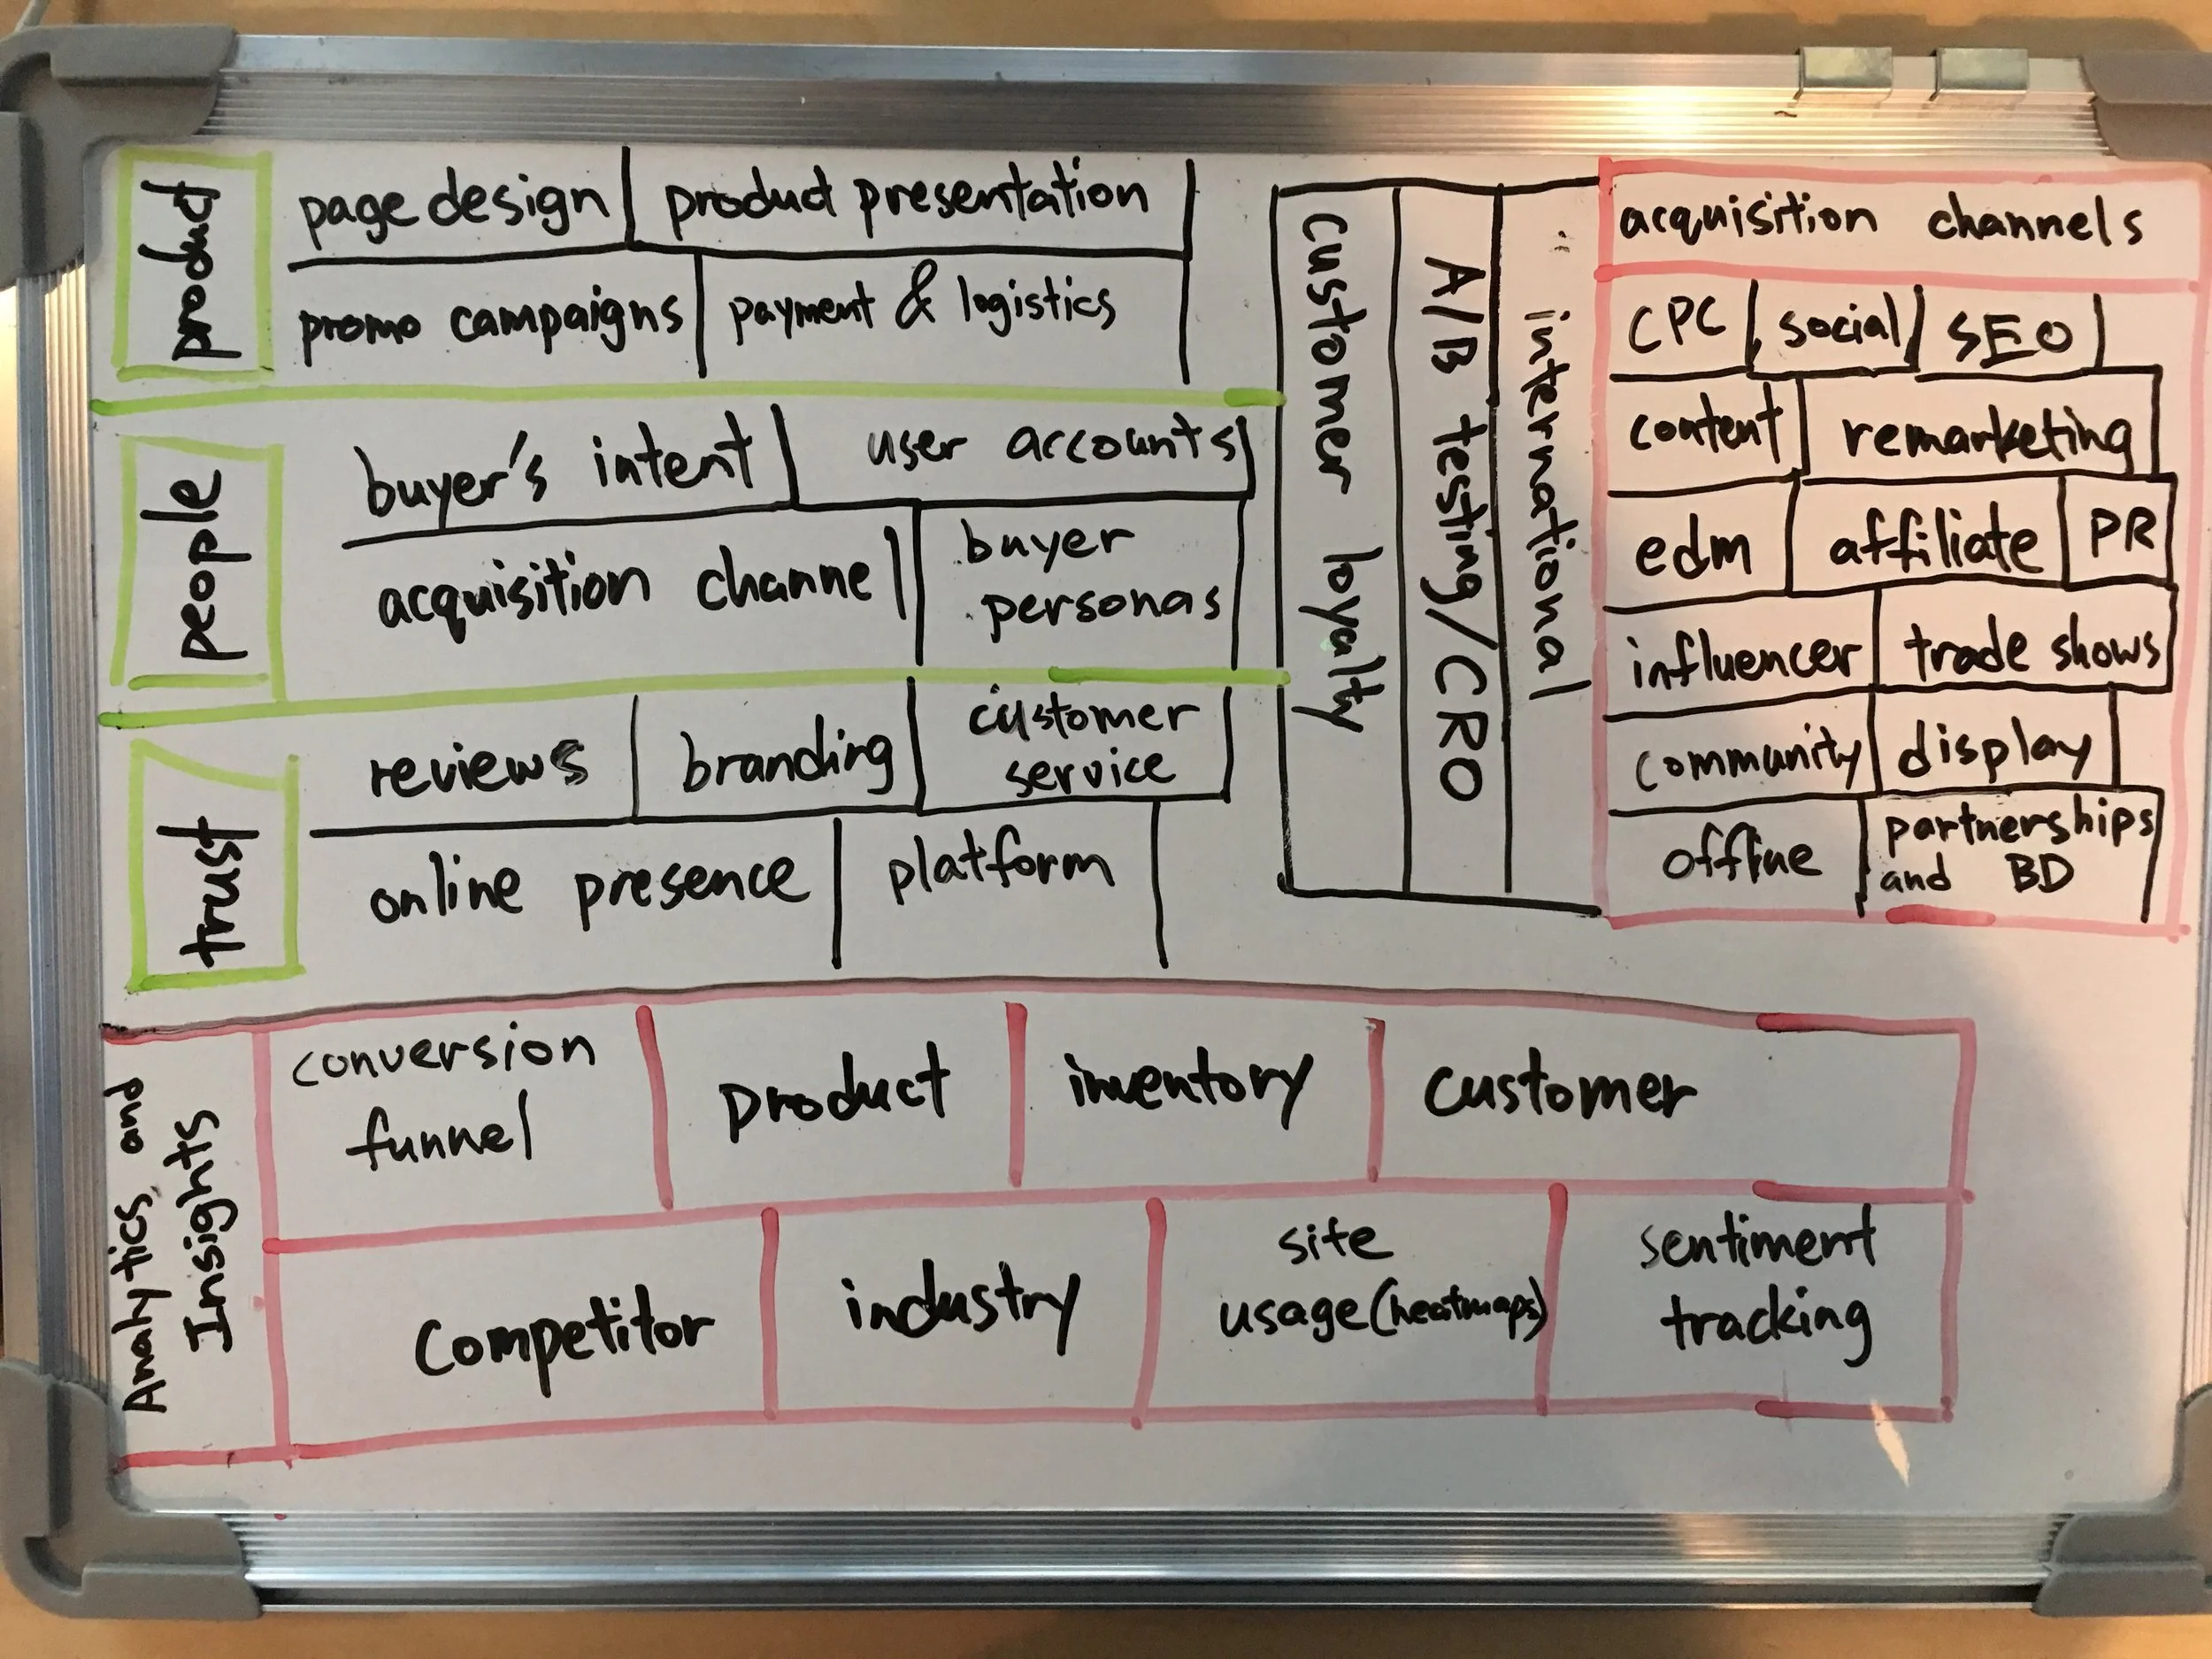 product
page design
product presentation
promo campaigns
payment & logistics
people
buyer's intent
user accounts
acquisition channel
buyer
personas
trust
reviews
branding
customer
service
online presence
platform
customer loyalty
A/B testing/CRO
international
acquisition channels
CPC
social
SEO
content
remarketing
edm
affiliate
PR
influencer
trade shows
community
display
offline
partnerships
and BD
Analytics and
Insights
conversion
funnel
product
inventory
customer
competitor
industry
site
usage (heatmaps)
sentiment
tracking